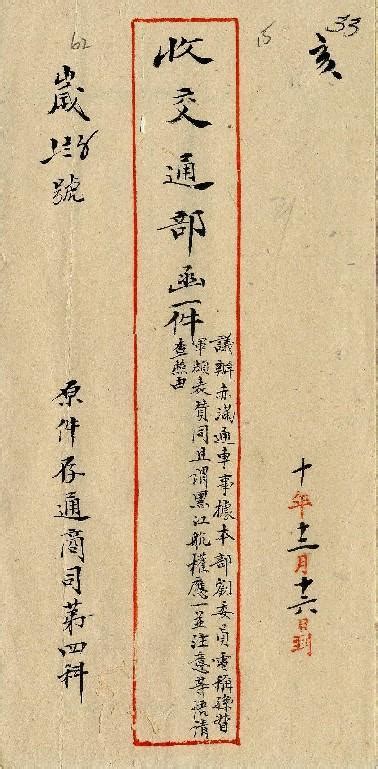 33
亥
十年十二月十六日到
15
收交通部函一件
議辦赤滿通車事據本部劉委員電稱孫督
軍頗表贊同且謂黑江航權應一並注意等語請
查照由
62
歲
號
原件存通商司第四科